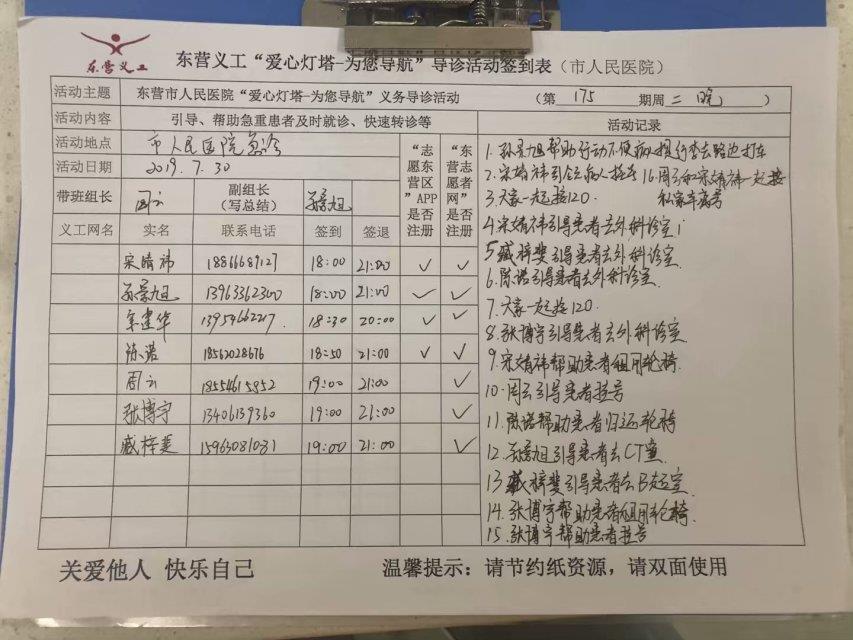 东营义工
东营义工“爱心灯塔-为您导航”导诊活动签到表（市人民医院）
活动主题 东营市人民医院“爱心灯塔-为您导航”义务导诊活动 （第 175 期周 二 晚 ）
活动内容 引导、帮助急重患者及时就诊、快速转诊等
活动地点 市人民医院急诊
活动日期 2019.7.30
带班组长 周云 副组长（写总结） 孙景旭
“志愿东营区”APP是否注册
“东营志愿者网”是否注册
义工网名 实名 联系电话 签到 签退
宋婧祎 18866689127 18:00 21:00 ✓ ✓
孙景旭 13963362300 18:00 21:00 ✓ ✓
建华 13954662217. 18:30 20:00 ✓ ✓
陈诺 18562028676 18:50 21:00 ✓ ✓
周云 18554615852 19:00 21:00 ✓
张博宇 13406139360 19:00 21:00 ✓
臧梓斐 15963081081 19:00 21:00 ✓
活动记录
1. 孙景旭帮助行动不便病人提行李去路边打车
2. 宋婧祎引领病人挂号
3. 大家一起接120.
4. 宋婧祎引导患者去外科诊室
5. 臧梓斐引导患者去外科诊室.
6. 陈诺引导患者去外科诊室.
7. 大家一起接120.
8. 张博宇引导患者去外科诊室
9. 宋婧祎帮助患者租用轮椅.
10. 周云引导患者挂号
11. 陈诺帮助患者归还轮椅
12. 孙景旭引导患者去CT室.
13 臧梓斐引导患者去B超室.
14. 张博宇帮助患者租用轮椅.
15. 张博宇帮助患者挂号
16. 周云和宋婧祎一起接
私家车病号
关爱他人 快乐自己
温馨提示：请节约纸资源，请双面使用